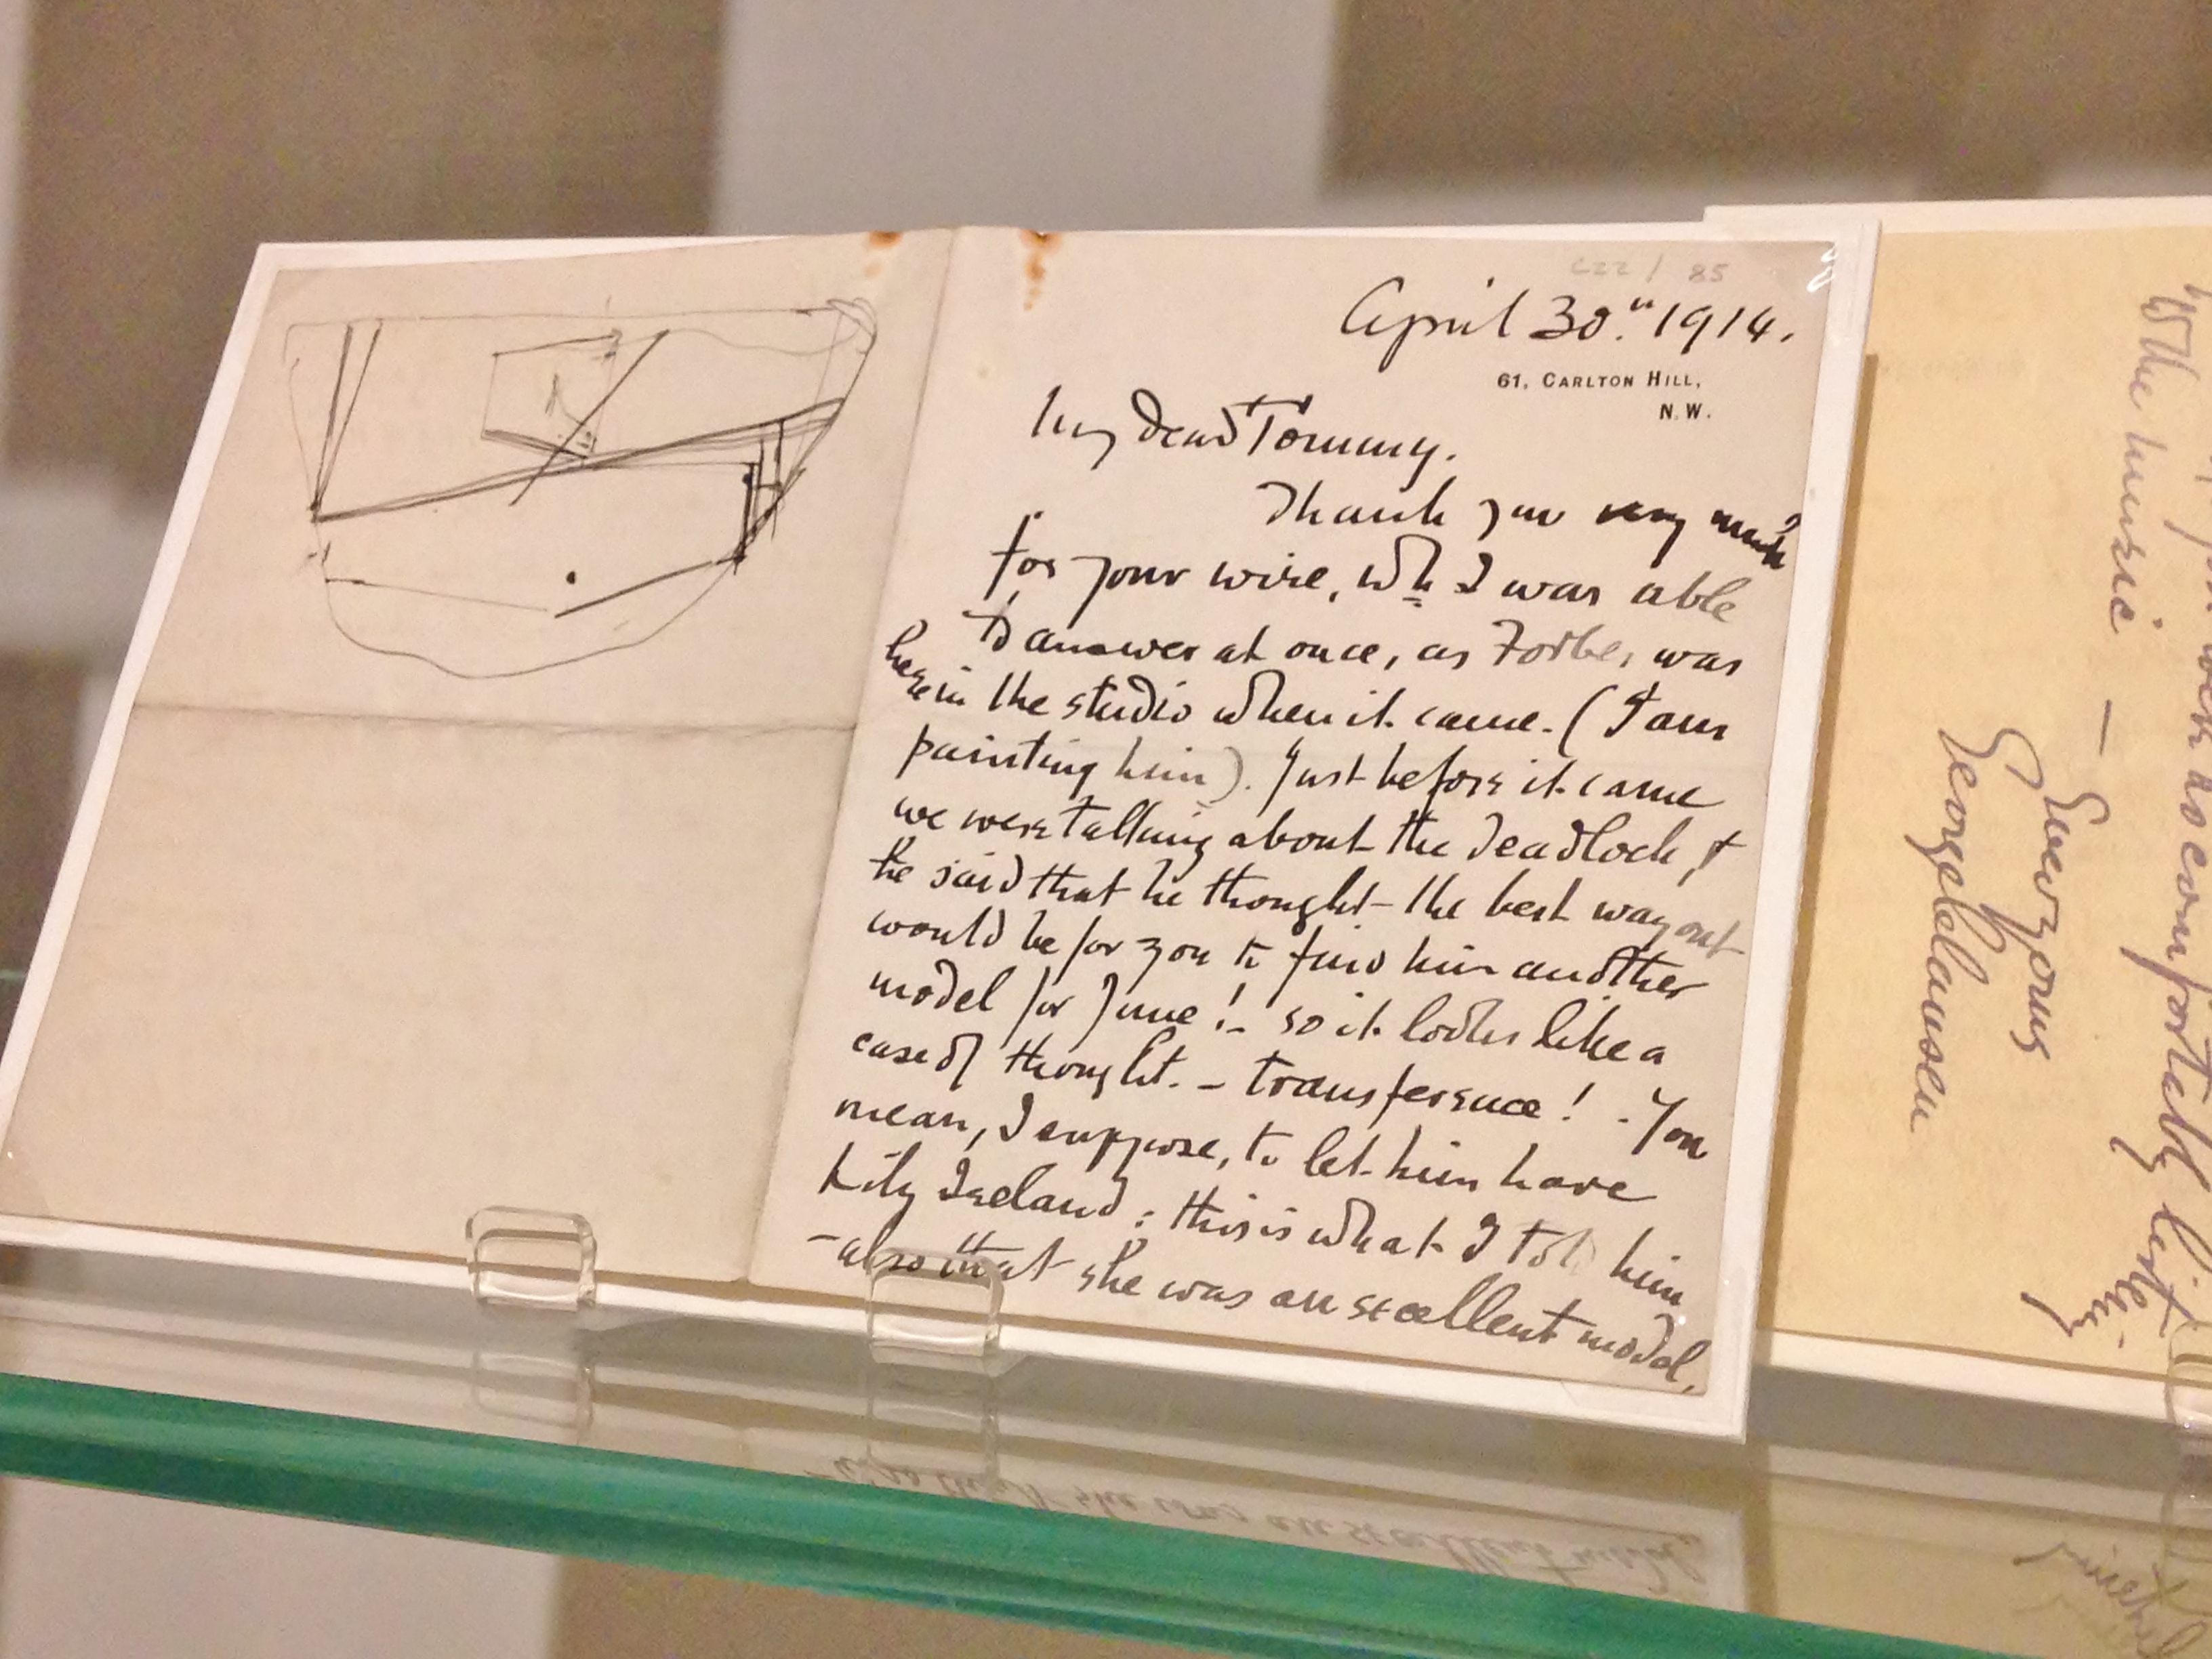 C22 / 85
April 30.th 1914.
61, CARLTON HILL,
N.W.
My dear Tommy.
Thank you very much
for your wire, wh. I was able
to answer at once, as Forbes was
here in the studio when it came. (I am
painting him). Just before it came
we were talking about the deadlock, &
he said that he thought the best way out
would be for you to find him another
model for June! - so it looks like a
case of thought. - transference! . You
mean, I suppose, to let him have
Lily Ireland: this is what I told him
- also that she was an excellent model,
the music —
Ever yours
George Clausen
as comfortably